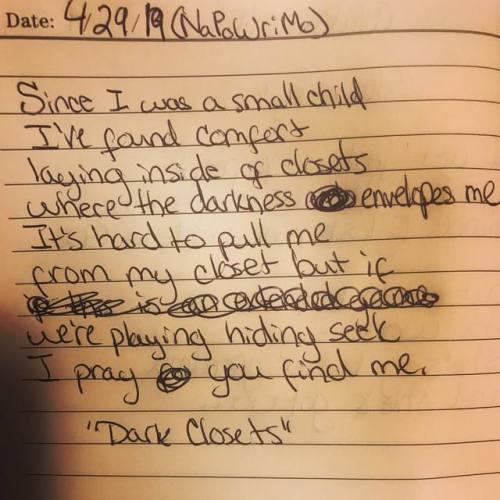 Date: 4/29/19 (NaPoWriMo)
Since I was a small child
I've found comfort
laying inside of closets
where the darkness envelopes me
It's hard to pull me
from my closet but if
we're playing hiding seek
I pray you find me.
"Dark Closets"